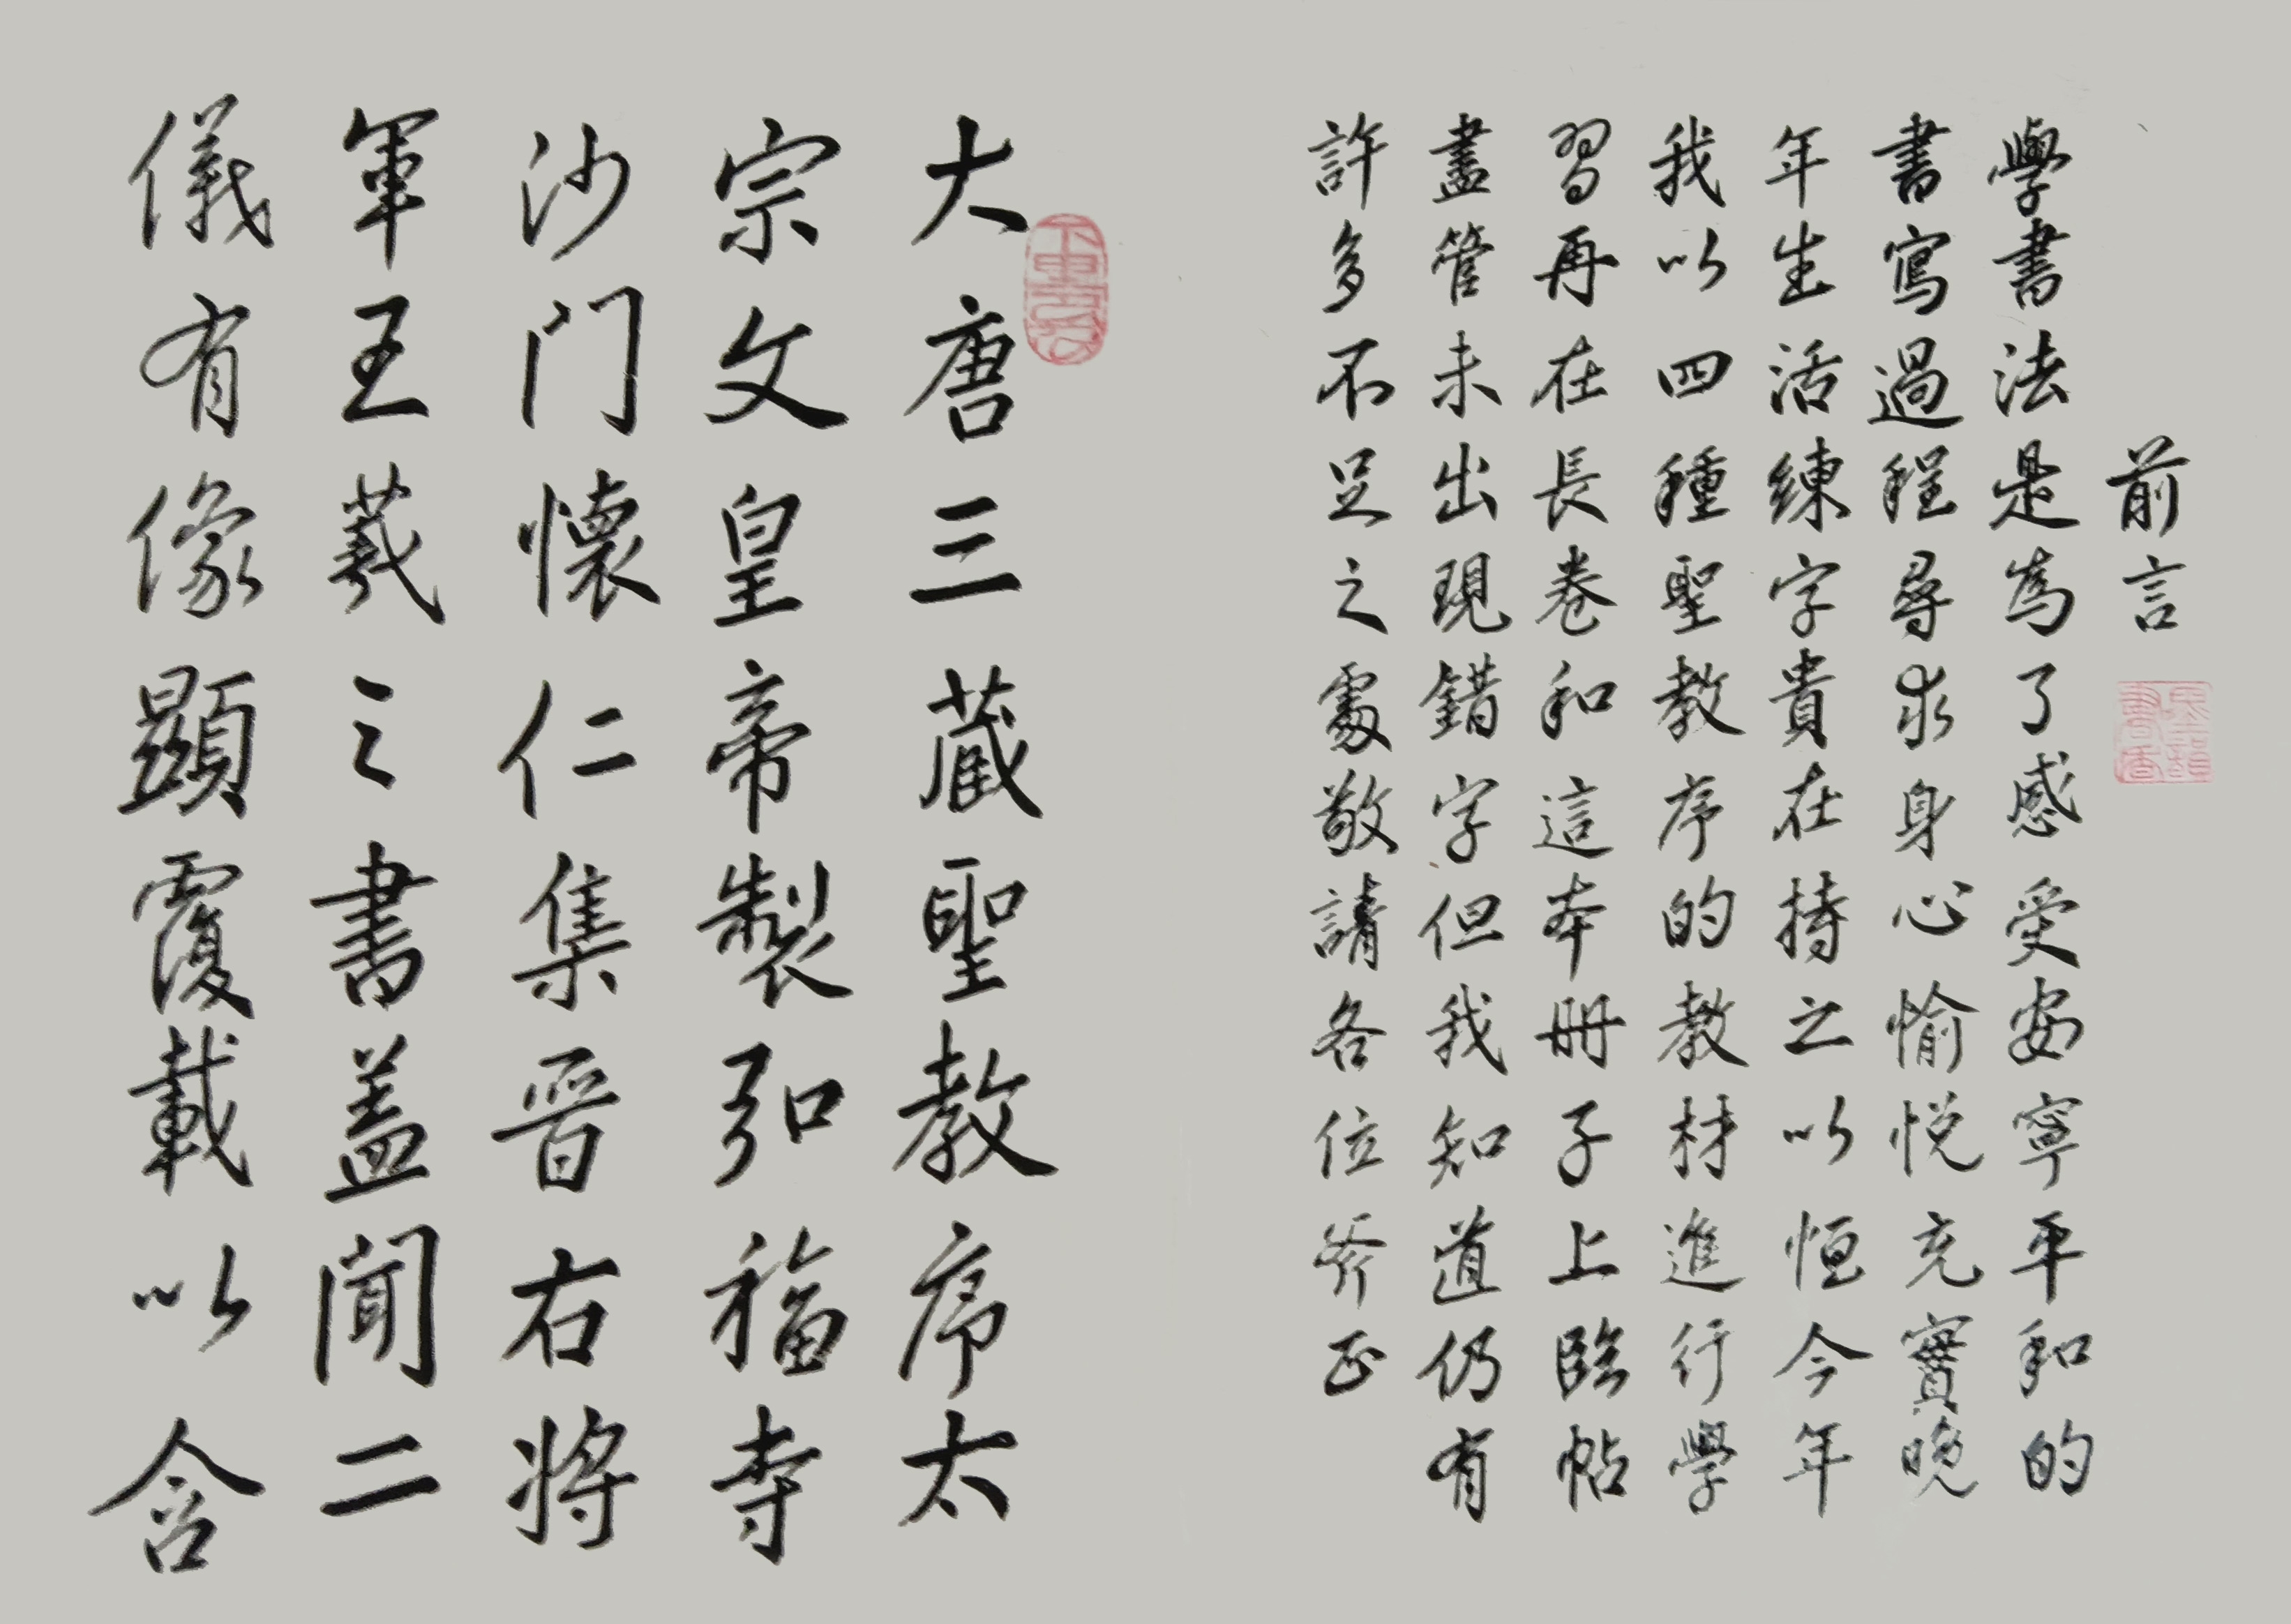 前言
學書法是為了感受安寧平和的
書寫過程尋求身心愉悅充實晚
年生活練字貴在持之以恆今年
我以四種聖教序的教材進行學
習再在長卷和這本冊子上臨帖
盡管未出現錯字但我知道仍有
許多不足之處敬請各位斧正
大唐三藏聖教序太
宗文皇帝製弘福寺
沙门懷仁集晉右將
軍王羲之書蓋聞二
儀有像顯覆載以含